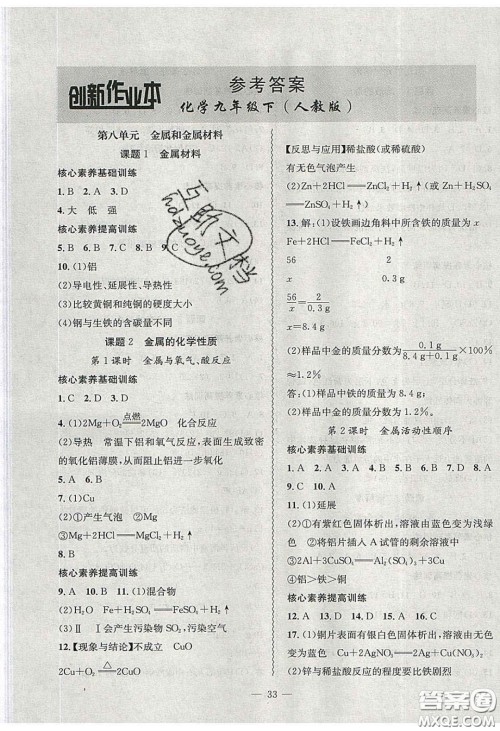 创新作业本
参考答案
化学九年级下（人教版）
第八单元 金属和金属材料
课题1 金属材料
核心素养基础训练
1. B 2. A 3. D
4. 大 低 强
核心素养提高训练
5. B 6. B 7. B 8. B 9. C
10. (1)铝
(2)导电性、延展性、导热性
(3)比较黄铜和纯铜的硬度大小
(4)钢与生铁的含碳量不同
课题2 金属的化学性质
第1课时 金属与氧气、酸反应
核心素养基础训练
1. C 2. D 3. D
4. (1)2Mg+O₂ 点燃 2MgO 化合反应
(2)导热 常温下铝和氧气反应，表面生成致密
的氧化铝薄膜，从而阻止铝进一步氧化
5. A 6. A
7. (1)Cu
(2)①产生气泡 ②Mg
③Mg+2HCl══MgCl₂+H₂↑
8. B
核心素养提高训练
9. A 10. B 11. (1)混合物
(2)H₂O Fe+H₂SO₄══FeSO₄+H₂↑
(3)Ⅱ Ⅰ会产生污染物SO₂，污染空气
12.【现象与结论】不成立 CuO
2Cu+O₂ △ 2CuO
【反思与应用】稀盐酸(或稀硫酸)
有无色气泡产生
(2)Zn+2HCl══ZnCl₂+H₂↑
Zn+H₂SO₄══ZnSO₄+H₂↑
13. 解：(1)设铁画边角料中所含铁的质量为x
Fe+2HCl══FeCl₂+H₂↑
56 2
x 0.3 g
56/x=2/0.3 g
x=8.4 g
(2)样品中金的质量分数为 0.1 g/(0.1 g+8.4 g)×100%
≈1.2%
答：(1)样品中铁的质量为8.4 g。
(2)样品中金的质量分数为1.2%。
第2课时 金属活动性顺序
核心素养基础训练
1. A 2. A 3. C 4. B 5. B 6. D 7. D 8. A
9. C 10. A
11. (1)延展
(2)①有紫红色固体析出，溶液由蓝色变为浅绿
色(或无明显现象) ②将铝片插入A试管的溶液中
③2Al+3CuSO₄══Al₂(SO₄)₃+3Cu
④铝>铁>铜
核心素养提高训练
12. A 13. D 14. D 15. A 16. C
17. (1)铜片表面有银白色固体析出，溶液由无色
变为蓝色
(2)锌与稀盐酸反应的程度要比铁剧烈
— 33 —
互助文档
hdzuoye.com
答案圈
MXQE.COM